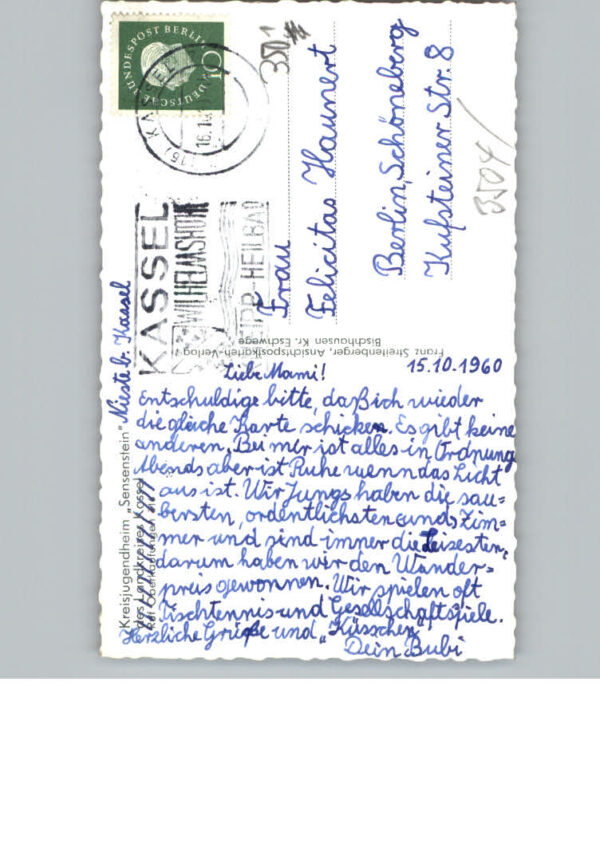 DEUTSCHE BUNDESPOST BERLIN
10
(16) KASSEL
16.10.
KASSEL
WILHELMSHÖHE
KNEIPP-HEILBAD
3501
Frau
Felicitas Haunert
Berlin, Schöneberg
Kufsteiner Str. 8
3504/
Franz Streitenberger, Ansichtspostkarten-Verlag
Bischhausen Kr. Eschwege
Kreisjugendheim „Sensenstein"
des Landkreises Kassel
Nieste b. Kassel
15.10.1960
Liebe Mami!
Entschuldige bitte, daß ich wieder
die gleiche Karte schicken. Es gibt keine
anderen. Bei mir ist alles in Ordnung
Abends aber ist Ruhe wenn das Licht
aus ist. Wir Jungs haben die sau-
bersten, ordentlichsten Zim-
mer und sind immer die Leisesten,
darum haben wir den Wander-
preis gewonnen. Wir spielen oft
Tischtennis und Gesellschaftspiele.
Herzliche Grüße und „Küsschen"
Dein Bubi